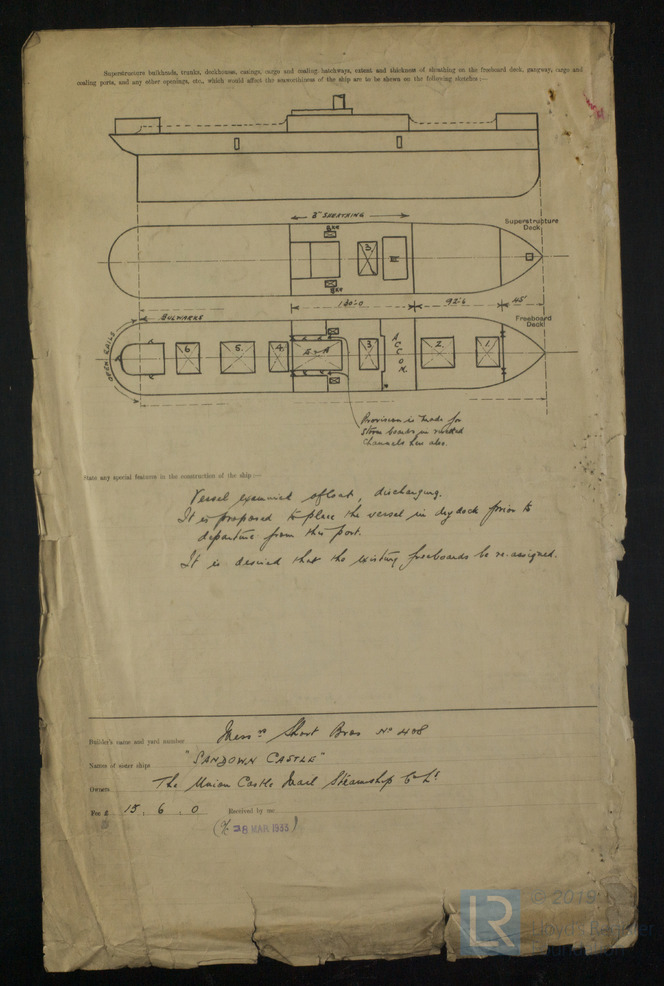 Superstructure bulkheads, trunks, deckhouses, casings, cargo and coaling hatchways, extent and thickness of sheathing on the freeboard deck, gangway, cargo and
coaling ports, and any other openings, etc., which would affect the seaworthiness of the ship are to be shewn on the following sketches:—
3" SHEATHING
Superstructure
Deck
3
130'-0
92'-6
45'
BULWARKS
Freeboard
Deck
OPEN RAILS
6
5
4
3
ACCOM.
2
1
Provision is made for
storm boards in riveted
channels here also.
State any special features in the construction of the ship:—
Vessel examined afloat, discharging.
It is proposed to place the vessel in dry dock prior to
departure from this port.
It is desired that the existing freeboards be re-assigned.
Builder's name and yard number Messrs Short Bros No 408
Names of sister ships "SANDOWN CASTLE"
Owners The Union Castle Mail Steamship Co Ld
Fee £ 15 . 6 . 0 Received by me
28 MAR 1933
LR
© 2019
Lloyd's Register
Foundation